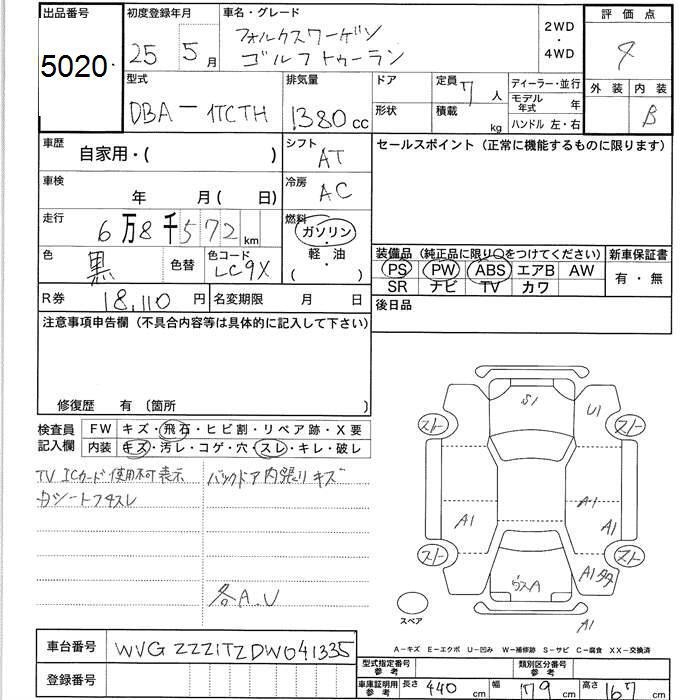 出品番号 初度登録年月 車名・グレード 2WD ・ 4WD 評価点
5020 25年 5月 フォルクスワーゲン
ゴルフトゥーラン
型式 排気量 ドア 定員 7人 ディーラー・並行 外装 内装
DBA-1TCTH 1380cc 形状 積載 kg モデル年式 年 B
ハンドル 左・右
車歴 自家用・( ) シフト AT セールスポイント(正常に機能するものに限ります)
車検 年 月( 日) 冷房 AC
走行 6万8千572km 燃料 ガソリン・軽油 ( )
色 黒 色替 色コード LC9X
装備品(純正品に限り○をつけてください) 新車保証書
PS PW ABS エアB AW 有・無
SR ナビ TV カワ
R券 18,110円 名変期限 月 日 後日品
注意事項申告欄(不具合内容等は具体的に記入して下さい)
修復歴 有(箇所 )
検査員記入欄 FW キズ・飛石・ヒビ割・リペア跡・X要
内装 キズ・汚レ・コゲ・穴・スレ・キレ・破レ
TV ICカード使用不可表示 バックドア内張りキズ
シートフチスレ
各A.U
S1 U1
スト スト
A1 A1 A1
スト スト
A1
A1
スペア
A-キズ E-エクボ U-凹み W-補修跡 S-サビ C-腐食 XX-交換済
車台番号 WVGZZZ1TZDW041335
登録番号
型式指定番号 参考 類別区分番号 参考
車庫証明用 参考 長さ 440cm 幅 179cm 高さ 167cm